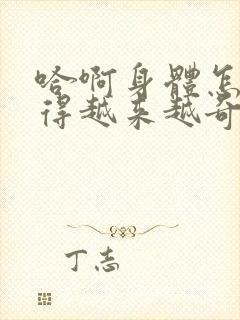 哈啊身體怎
得越来越奇
丁志